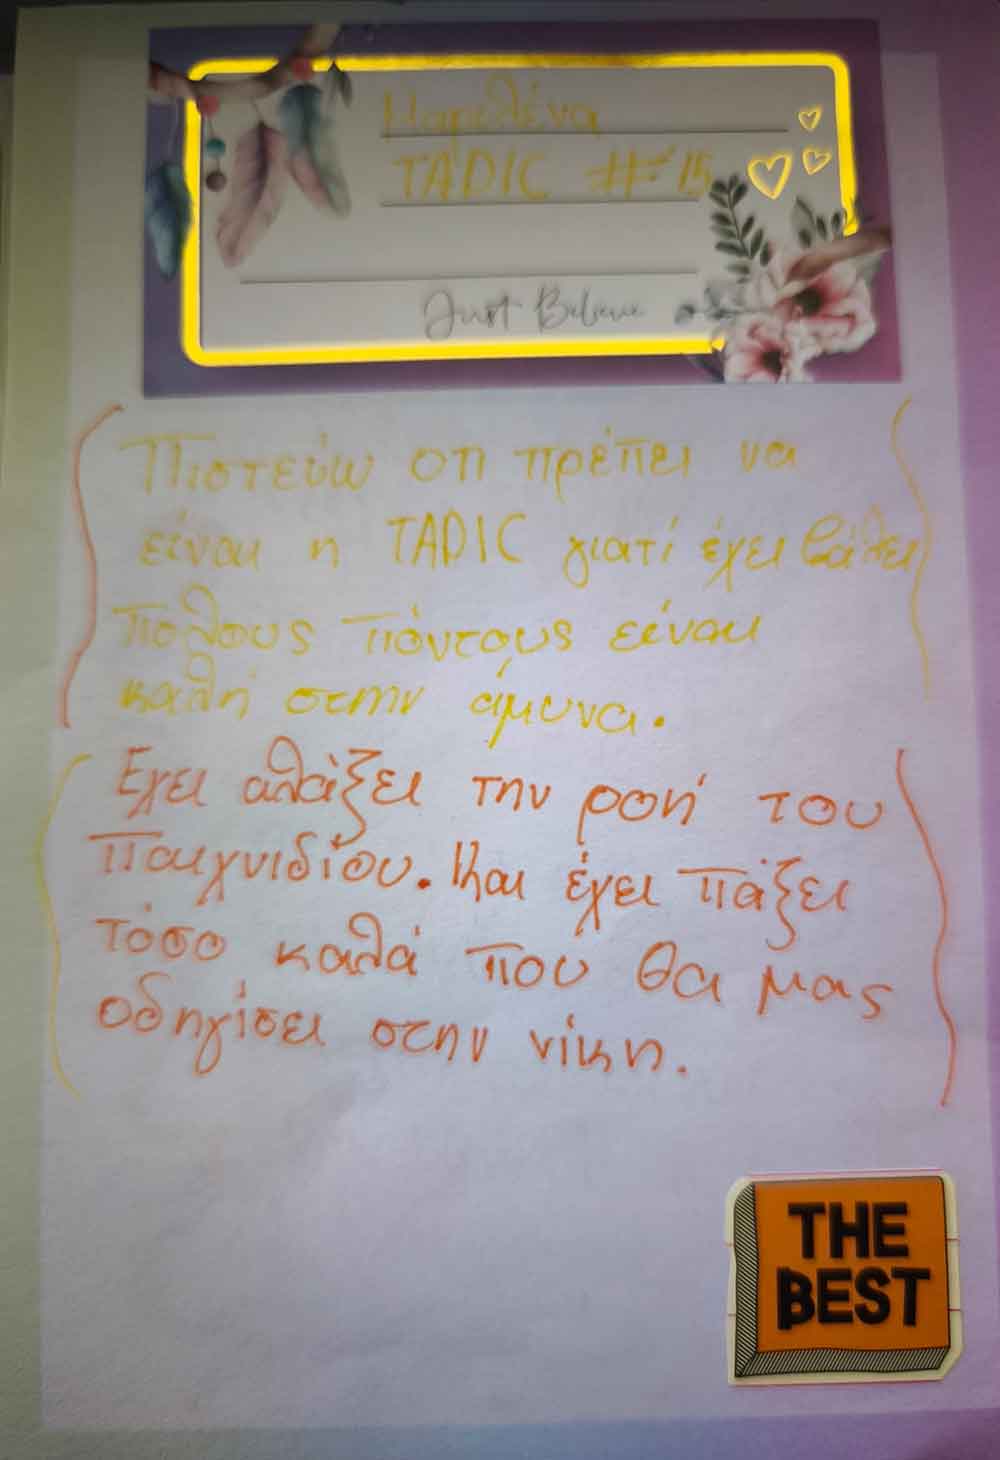 Μαριλένα
TADIC #15
Just Believe
Πιστεύω οτι πρέπει να
είναι η TADIC γιατί έχει βάλει
πολους πόντους είναι
καλή στην άμυνα.
Εχει αλάξει την ροή του
παιχνιδίου. Και έχει πάξει
τόσο καλά που θα μας
οδηγίσει στην νίκη.
THE
BEST